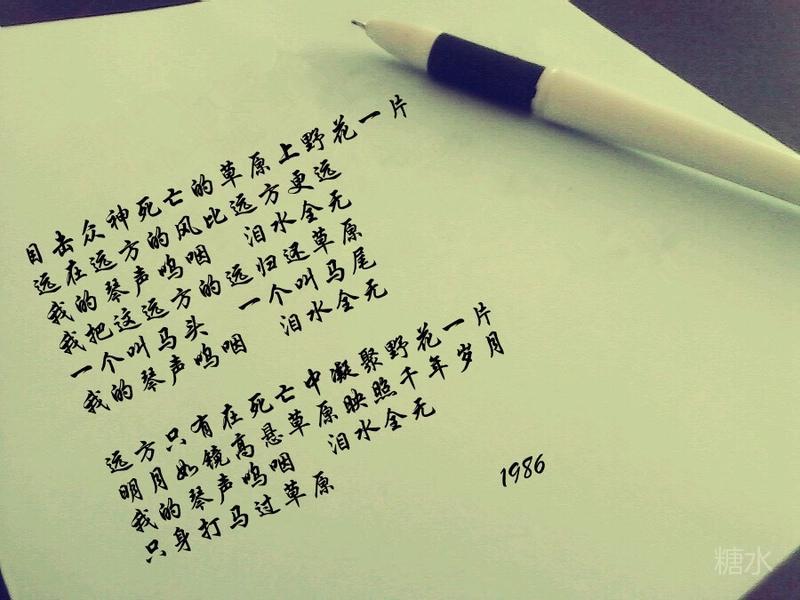 目击众神死亡的草原上野花一片
远在远方的风比远方更远
我的琴声呜咽 泪水全无
我把这远方的远归还草原
一个叫马头 一个叫马尾
我的琴声呜咽 泪水全无
远方只有在死亡中凝聚野花一片
明月如镜高悬草原映照千年岁月
我的琴声呜咽 泪水全无
只身打马过草原
1986
糖水